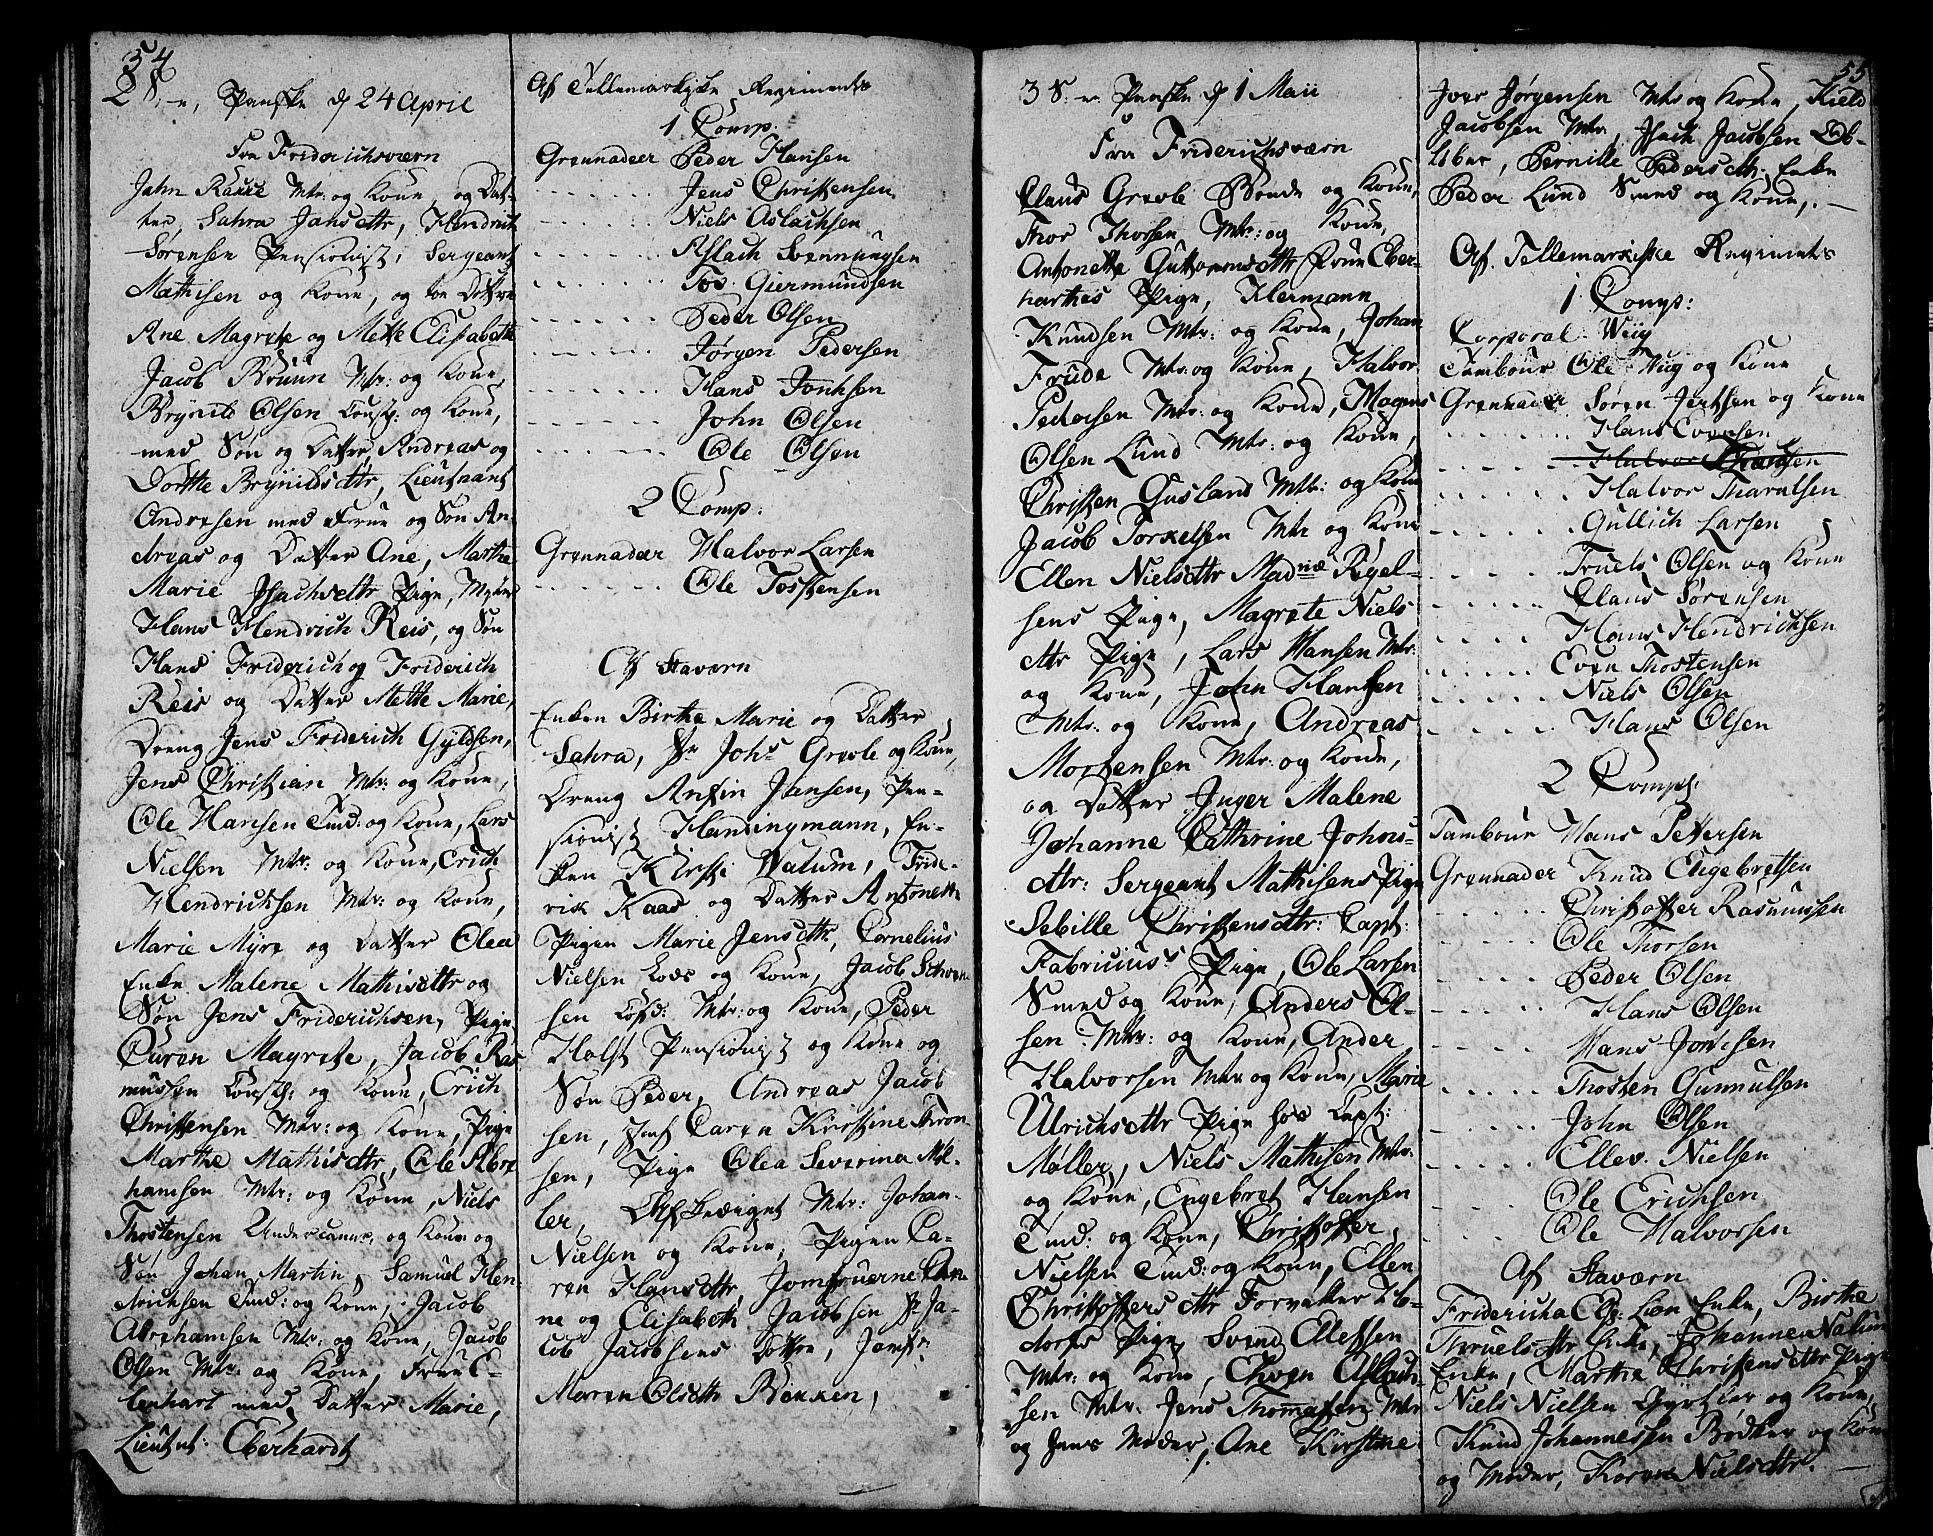 54
2 S. e. Paaske d 24 April
Fra Friderichsværn
Jahn Rause Mtr: og Kone, og Dat-
ter, Sahra Jahsdttr, Hendrich
Sørensen Pensionist, Sergeant
Mathisen og Kone, og to Døttre
Ane Magrete og Mette Elisabeth
Jacob Bruun Mtr: og Kone,
Brynild Olsen Const: og Kone,
med Søn og Datter Andreas og
Dorthe Brynildsdttr, Lieutnant
Andresen med Frue og Søn An-
dreas og Datter Ane, Marthe
Marie Isachsdttr Pige, Myhre
Hans Hendrich Reis, og Søn
Hans Friderich og Friderich
Reis og Datter Mette Marie,
Dreng Jens Friderich Gyldsen,
Jens Christian Mtr: og Kone,
Ole Hansen Tmd: og Kone, Lars
Nielsen Mtr: og Kone, Erich
Hendrichsen Mtr: og Kone,
Marie Myre og Datter Olea
Enke Malene Mathisdttr og
Søn Jens Friderichsen, Pige
Caren Magrete, Jacob Ras-
mussen Const: og Kone, Erich
Christensen Mtr: og Kone, Pige
Marthe Mathisdttr, Ole Abra-
hamsen Mtr: og Kone, Niels
Thostensen Undercanne, og Kone og
Søn Johan Martin, Samuel Hen-
drichsen Tmd: og Kone, Jacob
Abrahamsen Mtr: og Kone, Jacob
Olsen Mtr: og Kone, Frue E-
berhart med Datter Marie,
Lieutnt: Eberhardt
Af Tellemarkiske Regimentz
1 Comp.
Grennadeer Peder Hansen
Jens Christensen
Niels Aslachsen
Aslach Svennungsen
Tos. Giermundsen
Peder Olsen
Jørgen Pedersen
Hans Jonhsen
John Olsen
Ole Olsen
2 Comp:
Grennadeer Halvor Larsen
Ole Tosstensen
Af Staværn
Enken Birthe Marie og Datter
Sahra, Sr Johs Greole og Kone,
Dreng Anfin Jansen, Pen-
sionist Handingmann, En-
ken Kirsti Valum, Fride-
rik Kaas og Datter Antonett
Pigen Marie Jensdttr, Cornelius
Nielsen Lods og Kone, Jacob
sen Mtr: og Kone, Peder
Holst Pensionist og Kone og
Søn Peder, Andreas Jacob
sen, Jmf Caren Kirstine Aron
sen, Pige Olea Severina Møl-
ler, Afskediget Mtr: Johan-
Nielsen og Kone, Pigen Ca-
ren Hansdttr, Jomfruerne Ane
ne og Elisabeth Jacobsen Sr Ja-
cob Jacobsens Døttre, Jomfr:
Maren Olsdtt Bekken,
3 S. e. Paaske d 1 Maii
Fra Friderichsværn
Claus Greole Bonde og Kone,
Thor Thorsen Mtr: og Kone,
Antonette Guttormsdttr Frue Eber-
hartkes Pige, Hermann
Knudsen Mtr: og Kone, Johan
Frude Mtr: og Kone, Halvor
Pedersen Mtr: og Kone, Magnus
Olsen Lund Mtr: og Kone,
Christen Gusland Mtr: og Kone
Jacob Torkelsen Mtr og Kone
Ellen Nielsdttr Madme Rigel-
sens Pige, Magrete Niels
dttr Pige, Lars Hansen Mtr:
og Kone, John Hansen
Mtr: og Kone, Andreas
Mortensen Mtr: og Kone,
og Datter Inger Malene
Johanne Cathrine Johns-
dttr: Sergeant Mathisens Pige
Sebille Christensdttr: Capt:
Fabriciuss Pige, Ole Larsen
Smed og Kone, Anders Ol-
sen Mtr: og Kone, Ander
Halvorsen Mtr og Kone, Marie
Ulrichsdttr Pige hos Capt:
Møller, Niels Mathisen Mtr:
og Kone, Engebret Hansen
Tmd: og Kone, Christoffer
Nielsen Tmd: og Kone, Ellen
Christoffersdttr Forvalter Ho-
dorfs Pige, Svend Ellefsen
Mtr: og Kone, Even Aslach-
sen Mtr. Jens Thomasen Mtr
og hans Moder, Ane Kirstine
55
Iver Jørgensen Mtr og Kone, Kield
Jacobsen Mtr, Isach Jacobsen
Pernille Pedersdttr: Enke
Peder Lund Smed og Kone,. —
Af. Tellemarkiske Regiments
1 Comp:
Corporal Wiig
Tambour Ole Wiig og Kone
Grennadeer Søren Jertsen og Kone
Hans Evensen
Halvor
Halvor Tharalsen
Gullich Larsen
Truels Olsen og Kone
Claus Sørensen
Hans Hendrichsen
Even Thostensen
Niels Olsen
Hans Olsen
2 Comp:
Tambour Hans Pettersen
Grennader Knud Engebretsen
Christoffer Rasmussen
Ole Thorsen
Peder Olsen
Hans Olsen
Hans Jonsen
Thosten Gunnulsen
John Olsen
Ellev. Nielsen
Ole Erichsen
Ole Halvorsen
Af Staværn
Fridericha Els: Lian Enke, Birthe
Thruelsdttr Enke, Johanne Nalum
Enke, Marthe Christensdttr Pige
Niels Nielsen Gyrtler og Kone,
Knud Johannessen Bødker og Kone
og Moder, Karen Nielsdttr. —